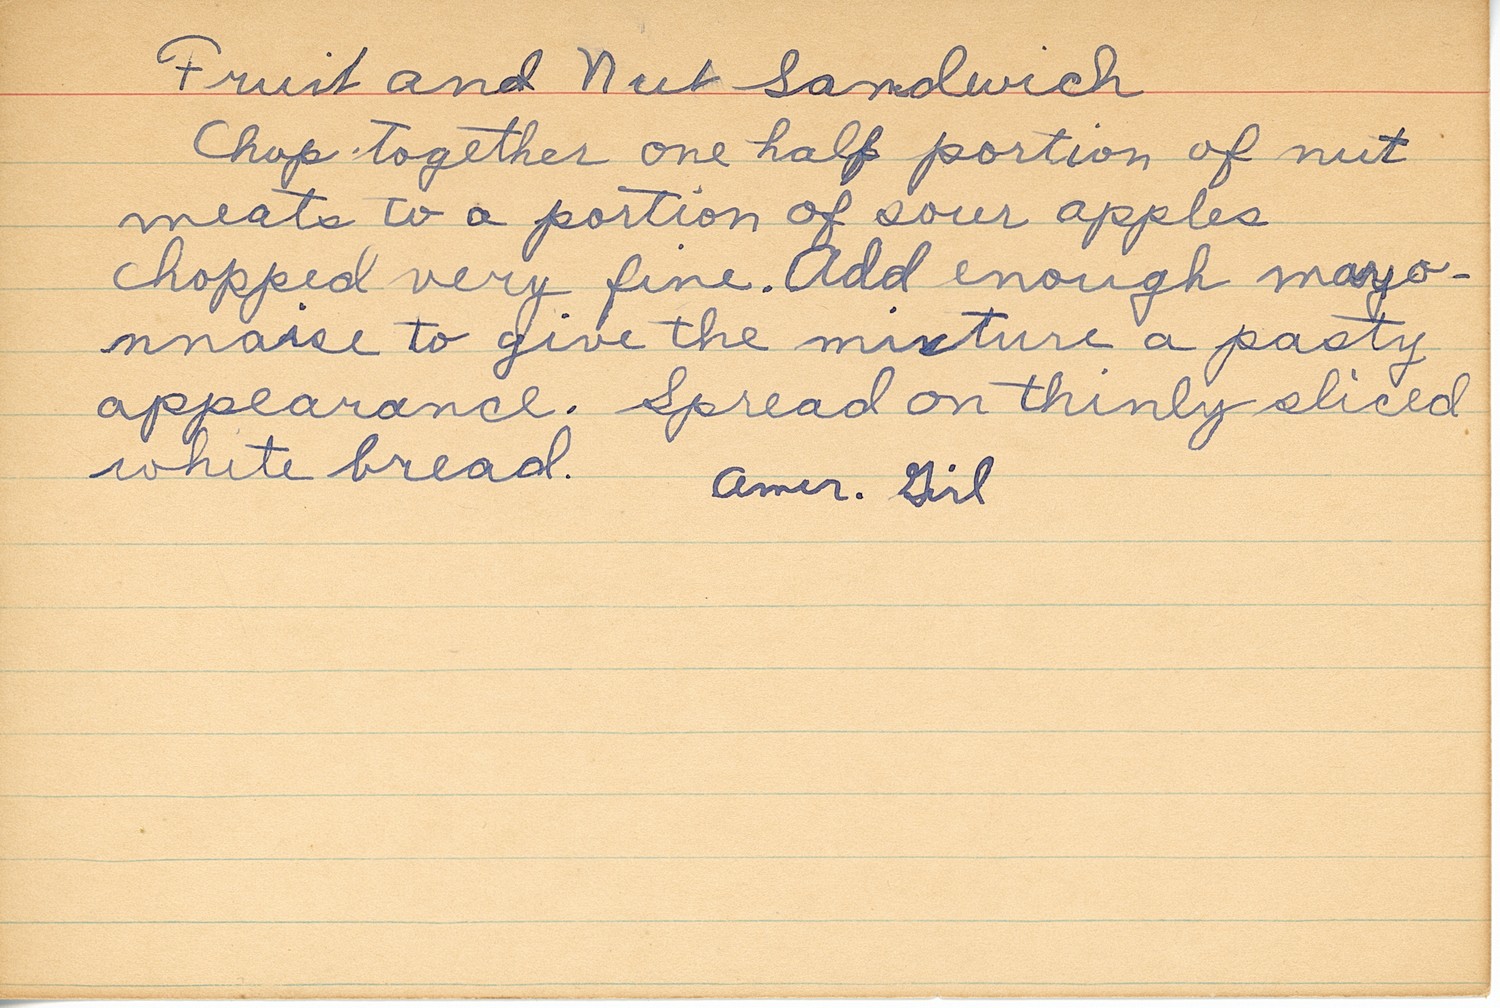 Fruit and Nut Sandwich
Chop together one half portion of nut
meats to a portion of sour apples
chopped very fine. Add enough mayo-
nnaise to give the mixture a pasty
appearance. Spread on thinly sliced
white bread.
Amer. Girl